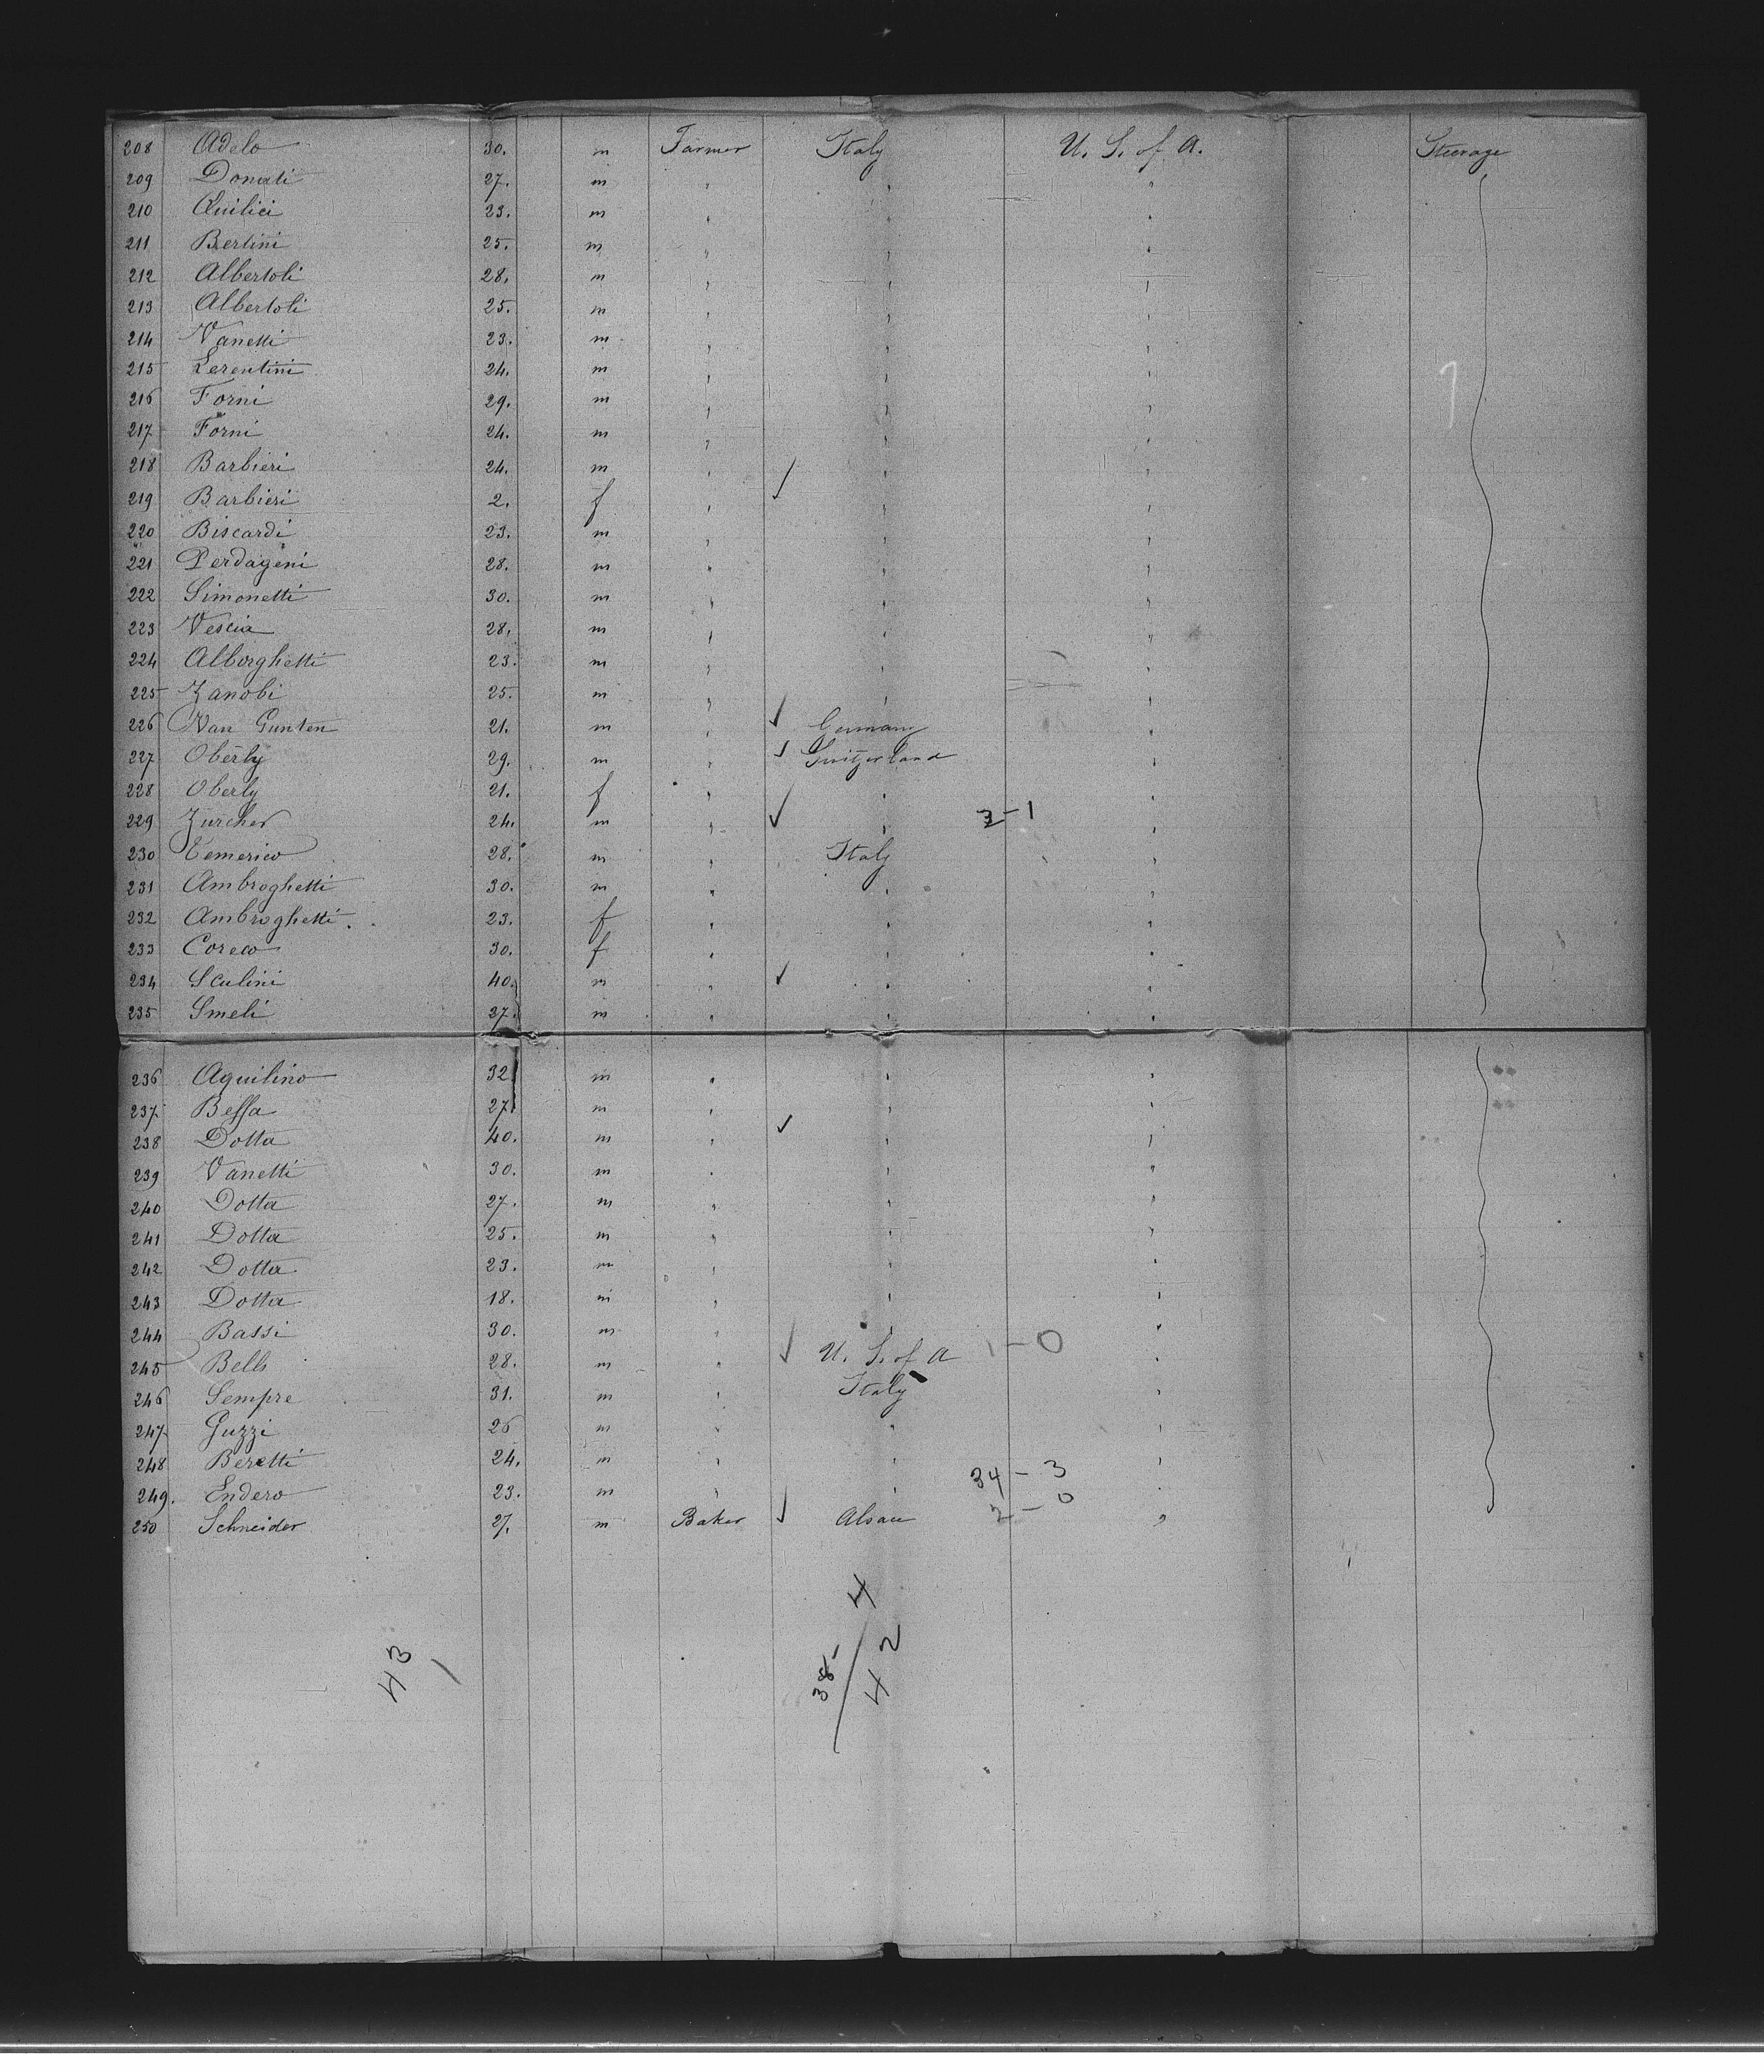 208 Adelo 30. m Farmer Italy U. S. of A. Steerage
209 Donati 27. m " " "
210 Quilici 23. m " " "
211 Bertini 25. m " " "
212 Albertoli 28. m " " "
213 Albertoli 25. m " " "
214 Vanetti 23. m " " "
215 Lerentini 24. m " " "
216 Forni 29. m " " "
217 Forni 24. m " " "
218 Barbieri 24. m " " "
219 Barbieri 2. f " " "
220 Biscardi 23. m " " "
221 Perdageni 28. m " " "
222 Simonetti 30. m " " "
223 Vescia 28. m " " "
224 Alborghetti 23. m " " "
225 Zanobi 25. m " " "
226 Van Gunten 21. m " Germany "
227 Oberly 29. m " Switzerland "
228 Oberly 21. f " " "
229 Zurcher 24. m " " 3-1 "
230 28. m " Italy "
231 Ambroghetti 30. m " " "
232 Ambroghetti 23. f " " "
233 Coreco 30. f " " "
234 Sculini 40. m " " "
235 Smeli 37. m " " "
236 Aquilino 32 m " " "
237 Bessa 27 m " " "
238 Dotta 40. m " " "
239 Vanetti 30. m " " "
240 Dotta 27. m " " "
241 Dotta 25. m " " "
242 Dotta 23. m " " "
243 Dotta 18. m " " "
244 Bassi 30. m " " "
245 Bells 28. m " U. S. of A 1-0 "
246 Sempre 31. m " Italy "
247 Guzzi 26 m " " "
248 Beretti 24. m " " "
249. Endero 23. m " " 34-3 "
250 Schneider 27. m Baker Alsace 2-0 "
43
38/4
42